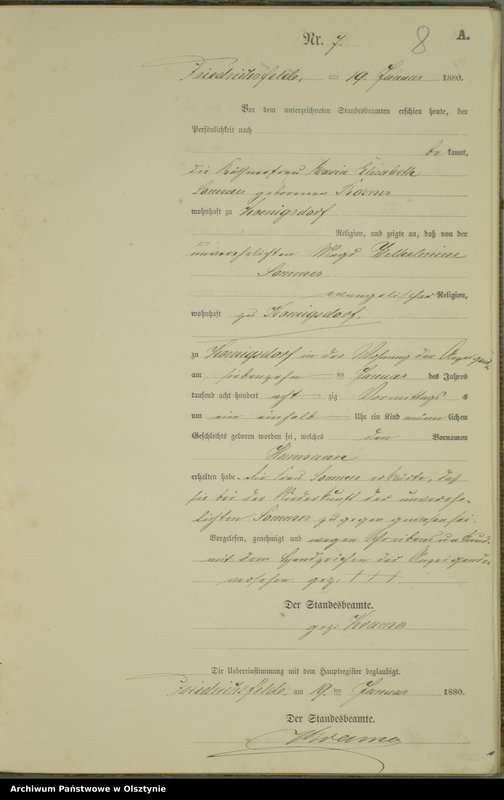 Nr. 7.
8
A.
Friedrichsfelde, am 19. Januar 1880.
Vor dem unterzeichneten Standesbeamten erschien heute, der
Persönlichkeit nach
be kannt,
die Käthnerfrau Maria Elisabeth
Sommer geborene
wohnhaft zu Koenigsdorf
Religion, und zeigte an, daß von der
unverehelichten Magd Wilhelmine
Sommer
evangelischer Religion,
wohnhaft zu Koenigsdorf.
zu Koenigsdorf in der Wohnung der
am siebenzehn ten Januar des Jahres
tausend acht hundert acht zig Vormittags
um ein einhalb Uhr ein Kind männ lichen
Geschlechts geboren worden sei, welches den Vornamen
Hermann
erhalten habe. Die Frau Sommer erklärte, daß
sie bei der Niederkunft der unverehe-
lichten Sommer zugegen gewesen sei.
Vorgelesen, genehmigt und wegen
mit dem Handzeichen der
versehen. gez. + + +.
Der Standesbeamte.
gez.
Die Uebereinstimmung mit dem Hauptregister beglaubigt.
Friedrichsfelde, am 19. ten Januar 1880.
Der Standesbeamte.
Archiwum Państwowe w Olsztynie